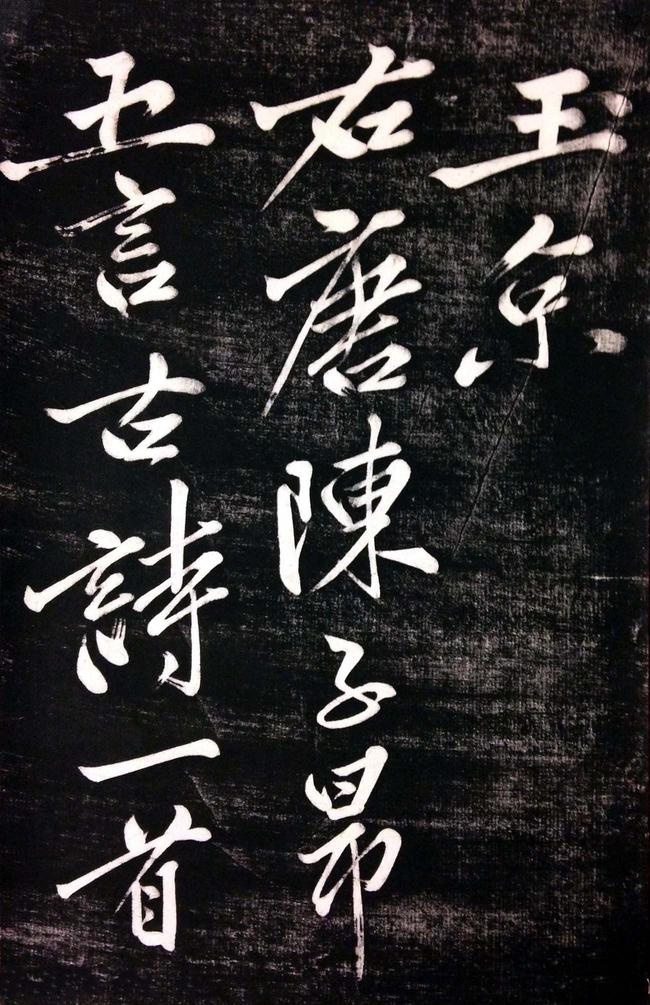 玉京
右唐陳子昂
五言古詩一首